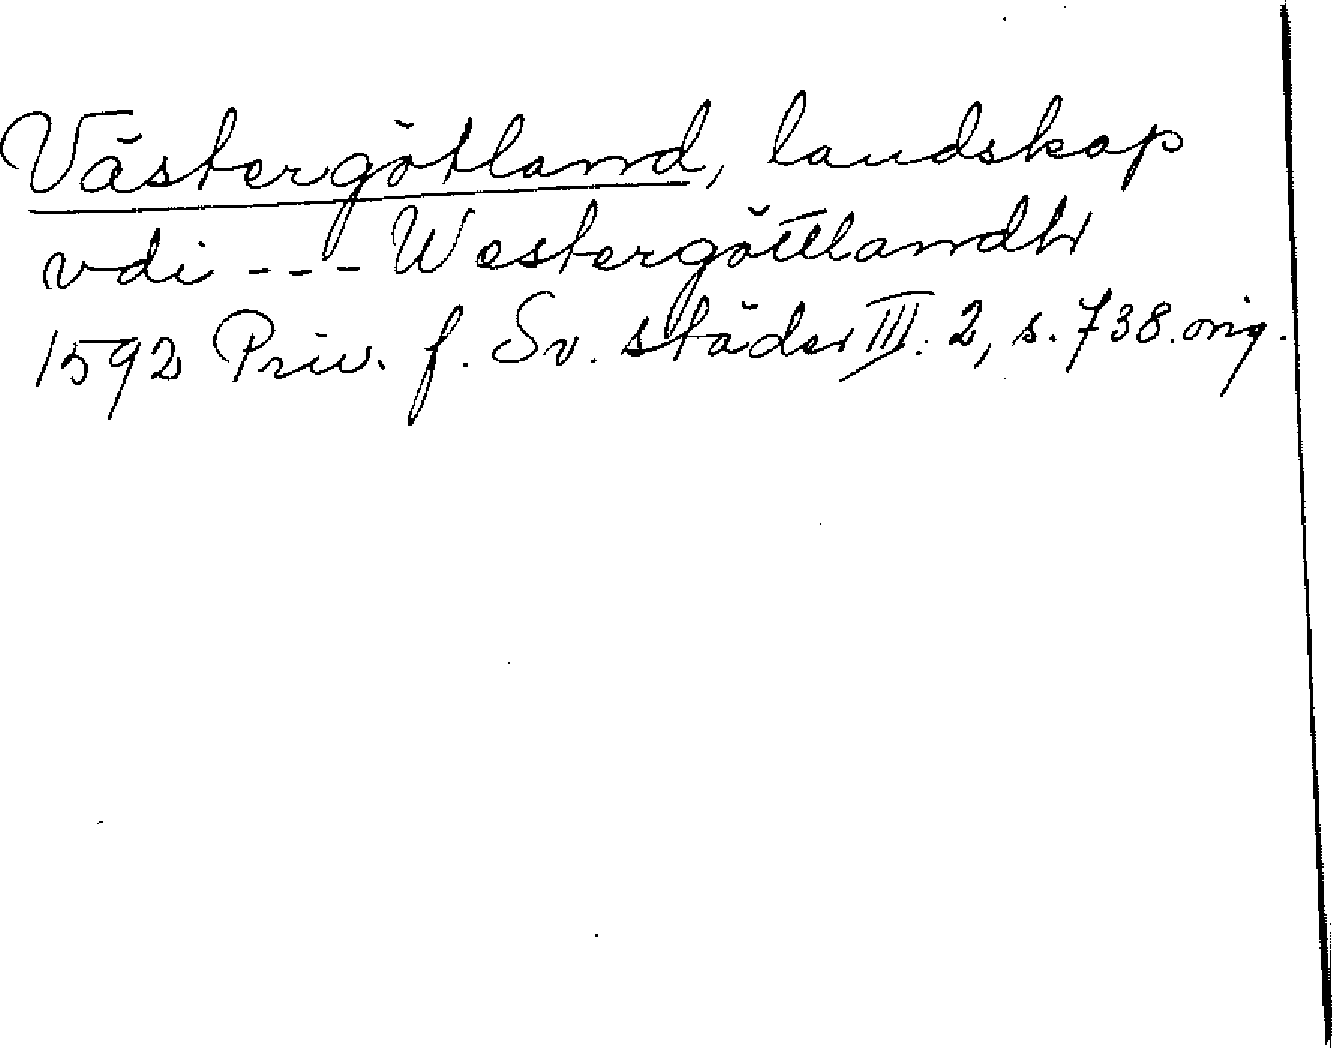 Västergötland, landskap
vdi --- Westergöttlandh
1592 Priv. f. Sv. städer III:2, s. 738. orig.